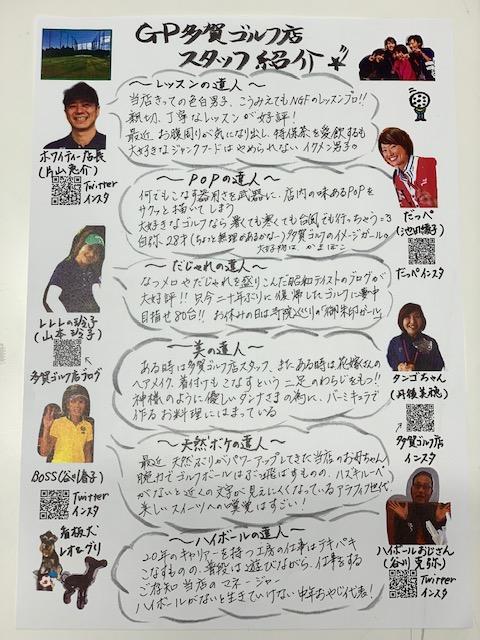 GP多賀ゴルフ店
スタッフ紹介
〜レッスンの達人〜
当店きっての色白男子、こうみえてもNGFのレッスンプロ!!
親切、丁寧なレッスンが好評!
最近、お腹周りが気になり出し、特保茶を愛飲するも
大好きなジャンクフードはやめられない イケメン男子。
ホワイティー店長
(片山恵介)
Twitter
インスタ
〜POPの達人〜
何でもこなす器用さを武器に、店内の味あるPOPを
サクッと描いてしまう
大好きなゴルフなら暑くても寒くても台風でも行っちゃう=3
自称、28才(ちょっと無理があるかな〜)多賀ゴルフのイメージガール。
大好物は、かまぼこ
だっペ
だっペインスタ
〜だじゃれの達人〜
なつメロやだじゃれを盛りこんだ昭和テイストのブログが
大好評!! 只今二十年ぶりに復帰したゴルフに夢中
目指せ80台!! お休みの日は寺院めぐりの「御朱印ガール」
レレレの玲子
(山本玲子)
多賀ゴルフ店ブログ
〜美の達人〜
ある時は多賀ゴルフ店スタッフ、またある時は花嫁さんの
ヘアメイク、着付けもこなすという二足のわらじをもつ!!
神様のように優しいダンナさまの為に、バーミキュラで
作るお料理にはまっている
タンゴちゃん
(丹後美穂)
多賀ゴルフ店
インスタ
〜天然ボケの達人〜
最近、天然ぶりがパワーアップしてきた当店のお母ちゃん
腕力でゴルフボールはぶっ飛ばすものの、ハズキルーペ
がないと近くの文字が見えにくくなっているアラフィフ世代
美しいスイーツへの嗅覚はすごい!
BOSS
Twitter
インスタ
〜ハイボールの達人〜
20年のキャリアーを持つ工房の仕事はテキパキ
こなすものの、普段は遊びながら、仕事をする
ご存知 当店のマネージャー
ハイボールがないと生きていけない中年おやじ代表!
ハイボールおじさん
(谷川克弥)
Twitter
インスタ
看板犬
レオ&グリ